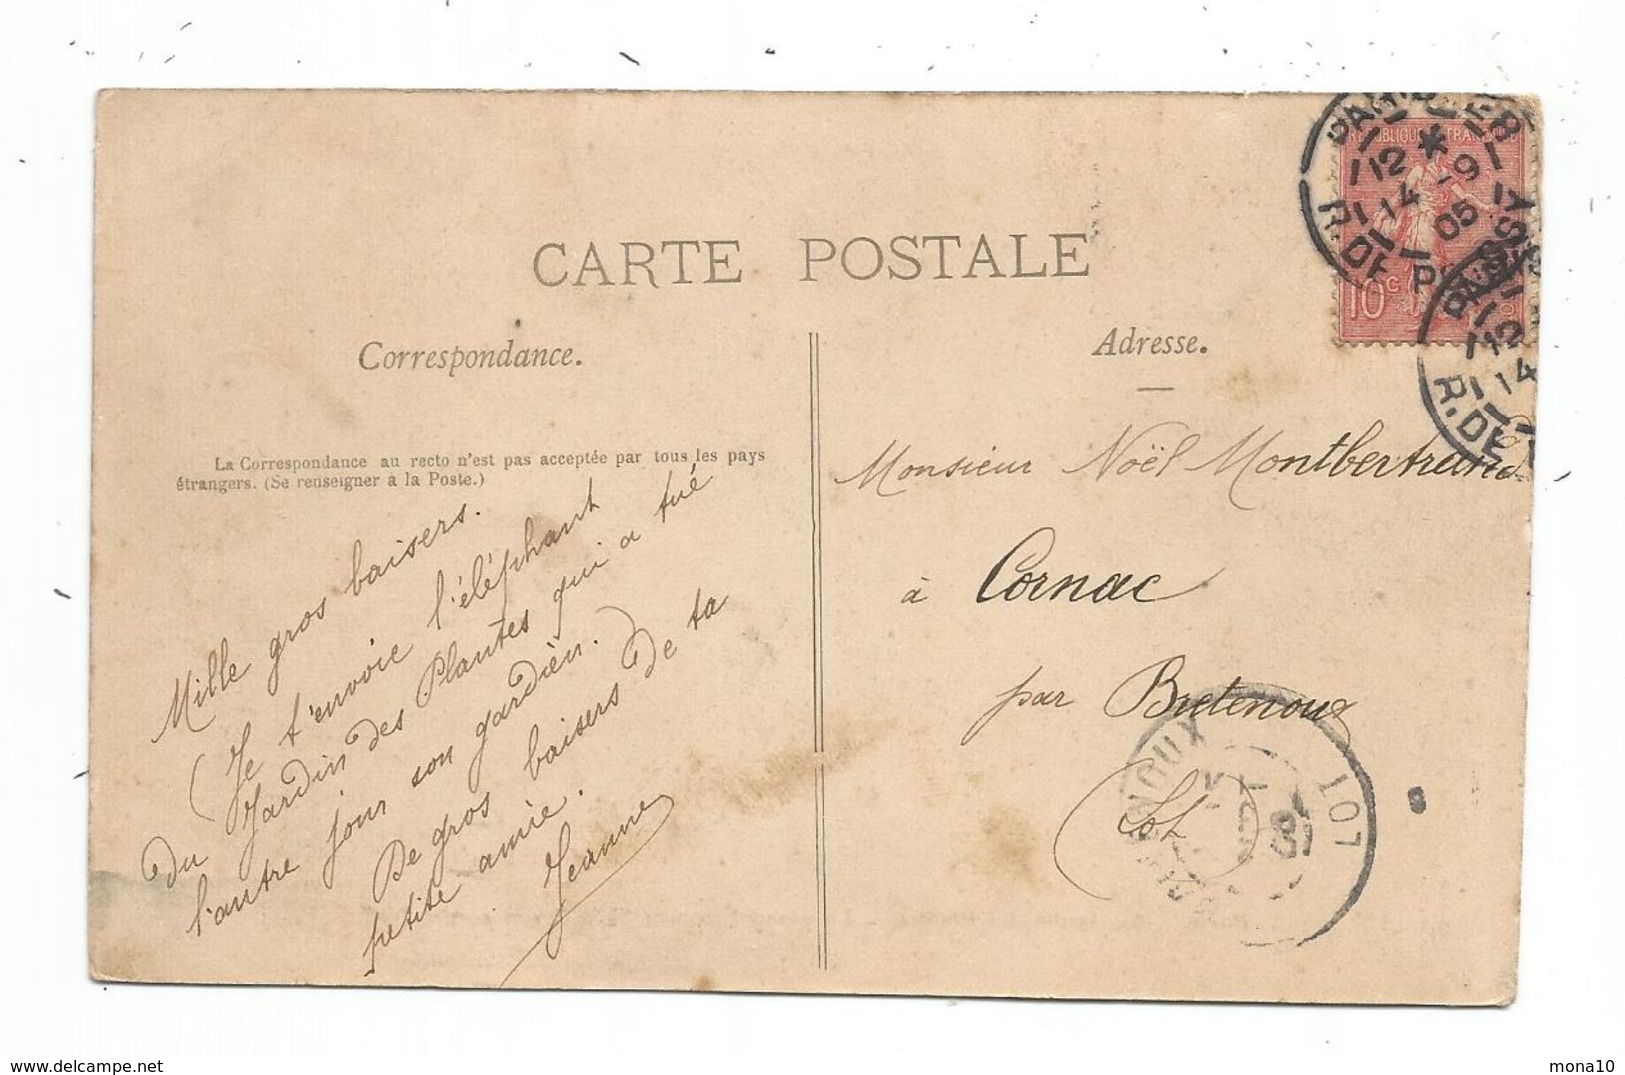 CARTE POSTALE
Correspondance.
La Correspondance au recto n'est pas acceptée par tous les pays
étrangers. (Se renseigner à la Poste.)
Mille gros baisers.
(Je t'envoie l'éléphant
du Jardin des Plantes qui a tué
l'autre jour son gardien.)
De gros baisers de ta
petite amie.
Jeanne
Adresse.
Monsieur Noël Montbertrand
à Cornac
par Bretenoux
Lot
REPUBLIQUE FRANCAISE
10c
12 *
14 -9
05
R. DE
PASSY
12
14
R. DE
LOT
mona10